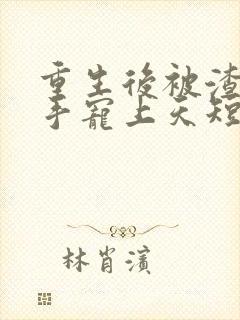 重生後被渣
手寵上天短
林肖濱